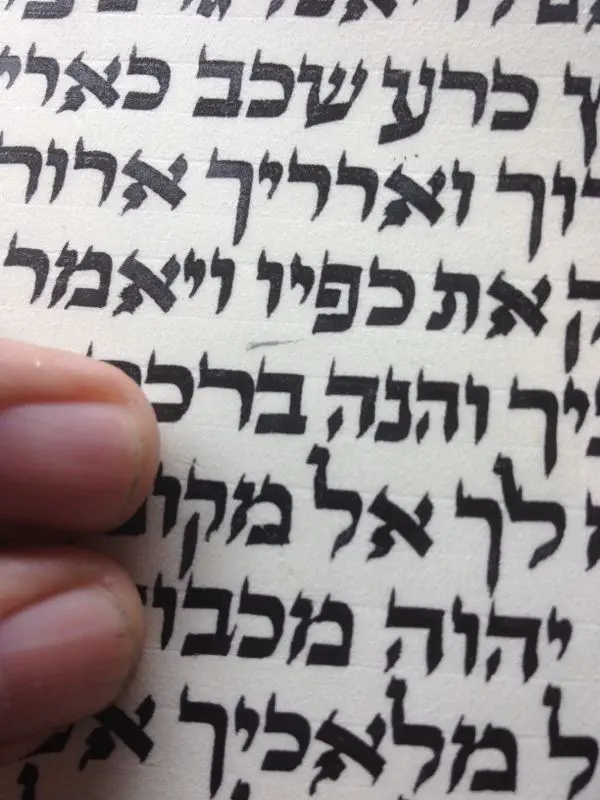 כרע שכב כארי
וארריך ארור
את כפיו ויאמר
והנה ברכ
לך אל מקו
יהוה מכבו
מלאכיך